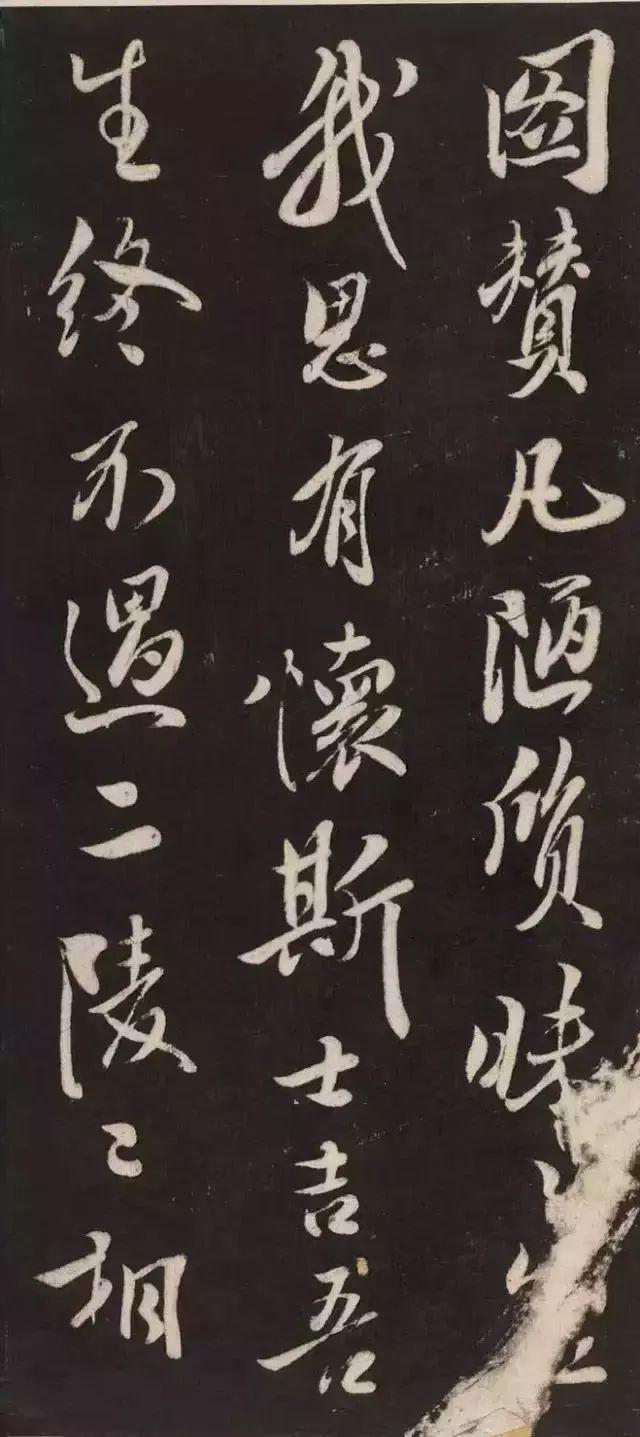 圖贊凡陋質昧
我思有懷斯士吉吾
生終不遇二陵〻相